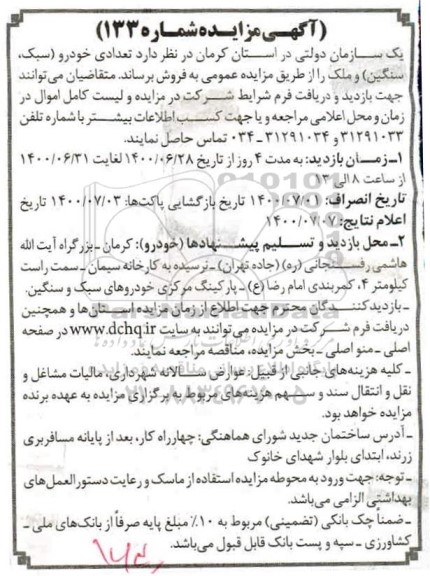 (آگهی مزایده شماره ۱۳۳)
یک سازمان دولتی در استان کرمان در نظر دارد تعدادی خودرو (سبک،
سنگین) و ملک را از طریق مزایده عمومی به فروش برساند. متقاضیان می‌توانند
جهت بازدید و دریافت فرم شرایط شرکت در مزایده و لیست کامل اموال در
زمان و محل اعلامی مراجعه و یا جهت کسب اطلاعات بیشتر با شماره تلفن
۳۱۲۹۱۰۳۳ و ۳۱۲۹۱۰۳۴ - ۰۳۴ تماس حاصل نمایند.
۱ـ زمان بازدید: به مدت ۴ روز از تاریخ ۱۴۰۰/۰۶/۲۸ لغایت ۱۴۰۰/۰۶/۳۱
از ساعت ۸ الی ۱۳
تاریخ انصراف: ۱۴۰۰/۰۷/۰۱ تاریخ بازگشایی پاکت‌ها: ۱۴۰۰/۰۷/۰۳ تاریخ
اعلام نتایج: ۱۴۰۰/۰۷/۰۷
۲ـ محل بازدید و تسلیم پیشنهادها (خودرو): کرمان ـ بزرگراه آیت الله
هاشمی رفسنجانی (ره) (جاده تهران) ـ نرسیده به کارخانه سیمان ـ سمت راست
کیلومتر ۴، کمربندی امام رضا (ع) ـ پارکینگ مرکزی خودروهای سبک و سنگین.
ـ بازدیدکنندگان محترم جهت اطلاع از زمان مزایده استان‌ها و همچنین
دریافت فرم شرکت در مزایده می‌توانند به سایت www.dchq.ir در صفحه
اصلی ـ منو اصلی ـ بخش مزایده، مناقصه مراجعه نمایند.
ـ کلیه هزینه‌های جانبی از قبیل: عوارض سالانه شهرداری، مالیات مشاغل و
نقل و انتقال سند و سهم هزینه‌های مربوط به برگزاری مزایده به عهده برنده
مزایده خواهد بود.
ـ آدرس ساختمان جدید شورای هماهنگی: چهارراه کار، بعد از پایانه مسافربری
زرند، ابتدای بلوار شهدای خانوک
ـ توجه: جهت ورود به محوطه مزایده استفاده از ماسک و رعایت دستورالعمل‌های
بهداشتی الزامی می‌باشد.
ـ ضمناً چک بانکی (تضمینی) مربوط به ۱۰٪ مبلغ پایه صرفاً از بانک‌های ملی ـ
کشاورزی ـ سپه و پست بانک قابل قبول می‌باشد.